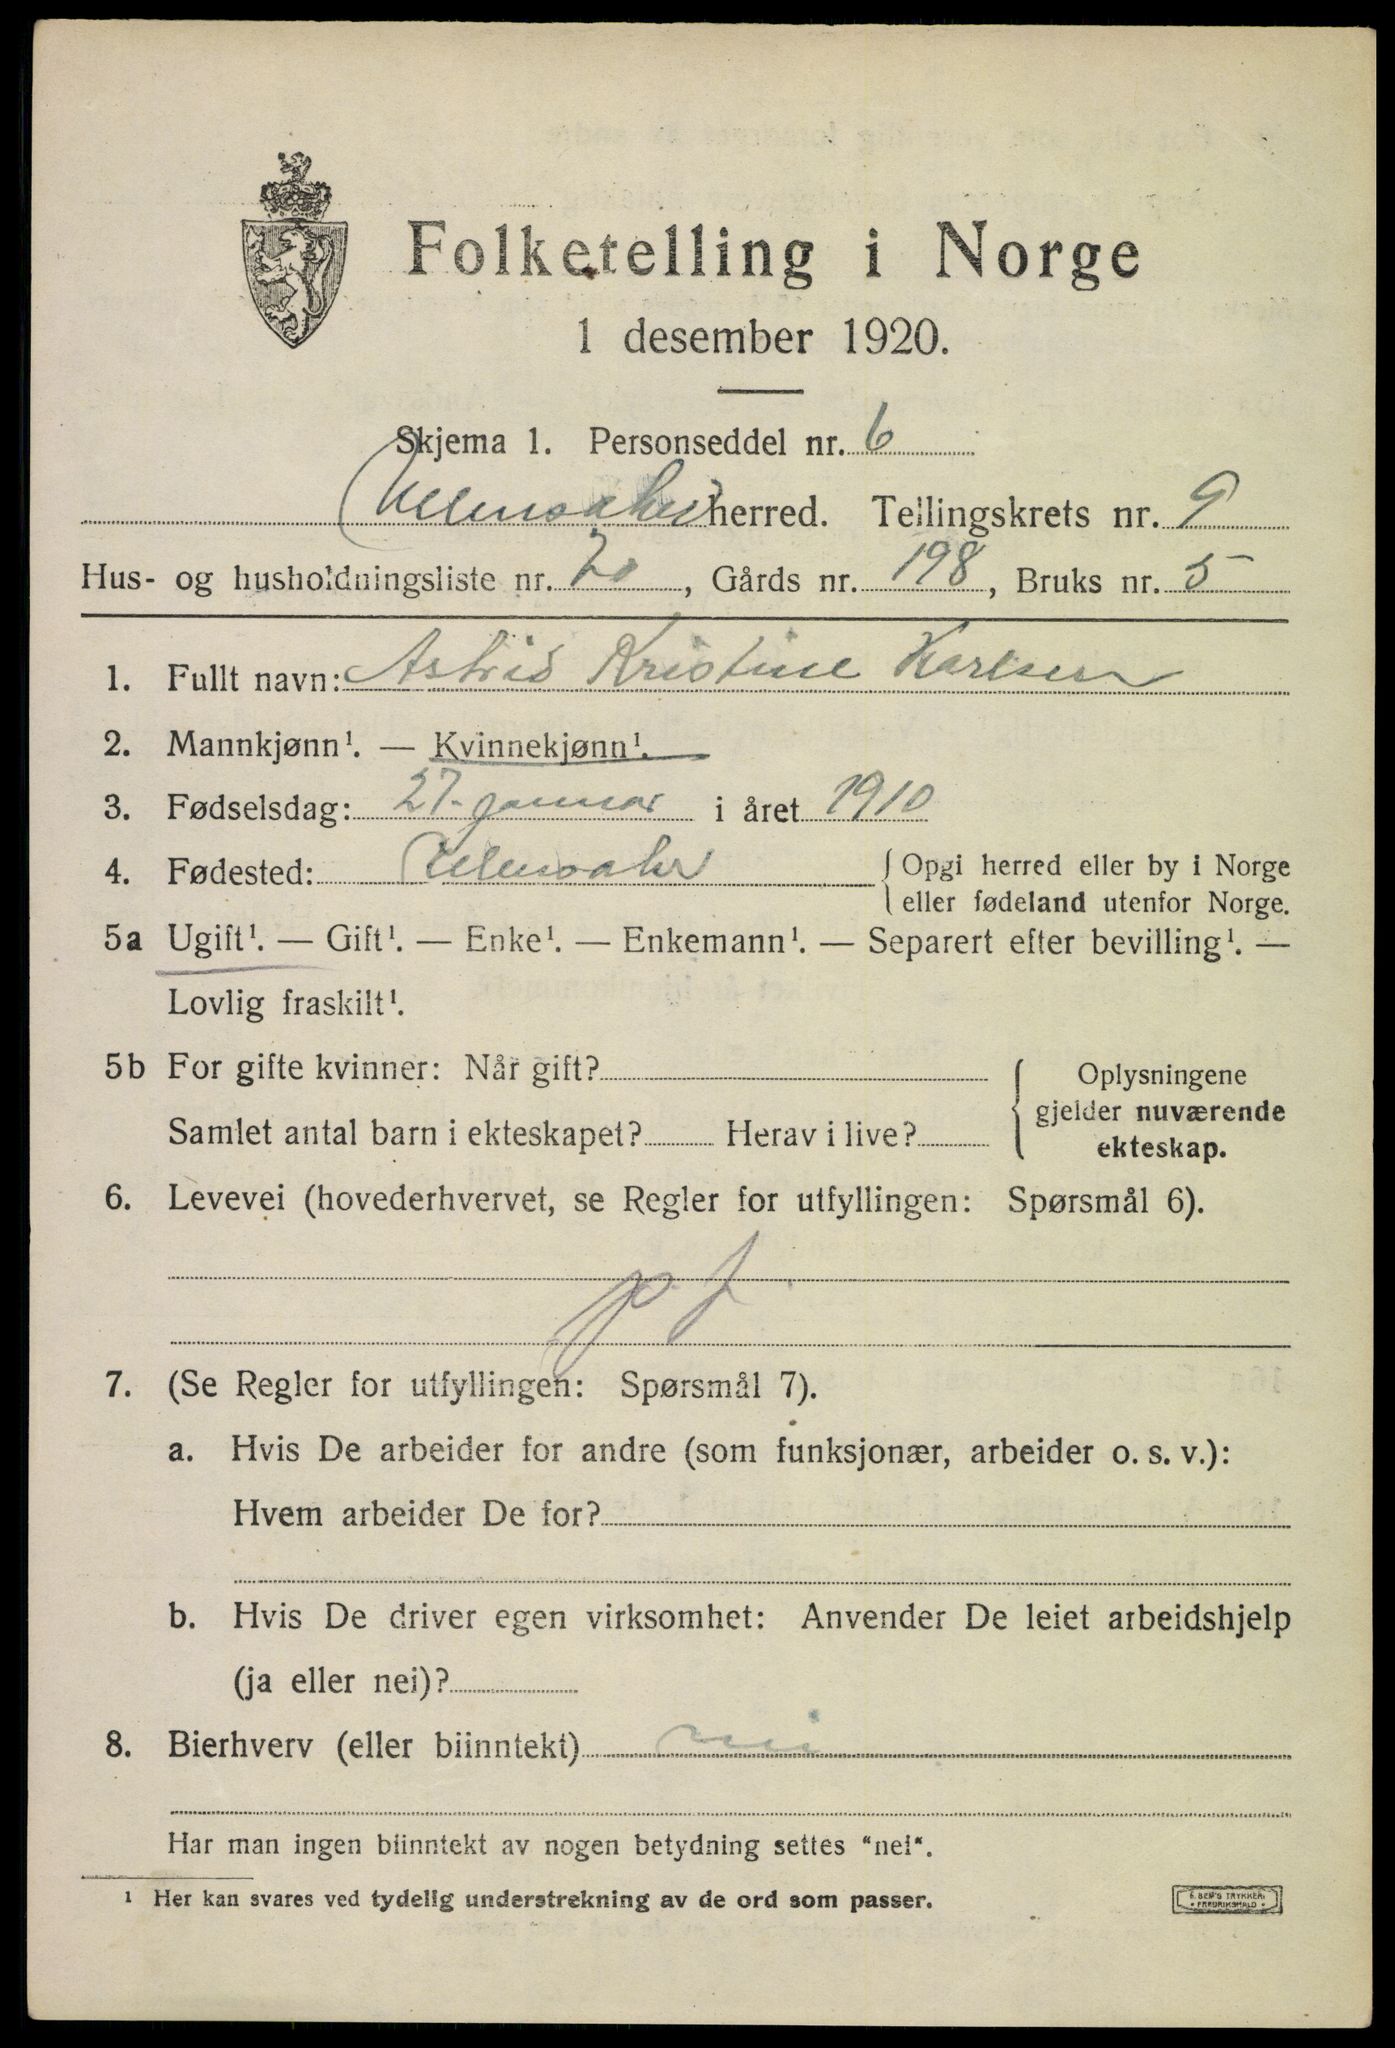 Folketelling i Norge
1 desember 1920.
Skjema 1. Personseddel nr. 6
Ullensaker herred. Tellingskrets nr. 9
Hus- og husholdningsliste nr. 20, Gårds nr. 198, Bruks nr. 5
1. Fullt navn: Astrid Kristine Karlsen
2. Mannkjønn¹. — Kvinnekjønn¹.
3. Fødselsdag: 27. januar i året 1910
4. Fødested: Ullensaker { Opgi herred eller by i Norge
eller fødeland utenfor Norge.
5a Ugift¹. — Gift¹. — Enke¹. — Enkemann¹. — Separert efter bevilling¹. —
Lovlig fraskilt¹.
5b For gifte kvinner: Når gift? { Oplysningene
gjelder nuværende
Samlet antal barn i ekteskapet? Herav i live?
ekteskap.
6. Levevei (hovederhvervet, se Regler for utfyllingen: Spørsmål 6).
p. f.
7. (Se Regler for utfyllingen: Spørsmål 7).
a. Hvis De arbeider for andre (som funksjonær, arbeider o. s. v.):
Hvem arbeider De for?
b. Hvis De driver egen virksomhet: Anvender De leiet arbeidshjelp
(ja eller nei)?
8. Bierhverv (eller biinntekt) nei
Har man ingen biinntekt av nogen betydning settes "nei".
¹ Her kan svares ved tydelig understrekning av de ord som passer.
E. SEM'S TRYKKERI
• FREDRIKSHALD •